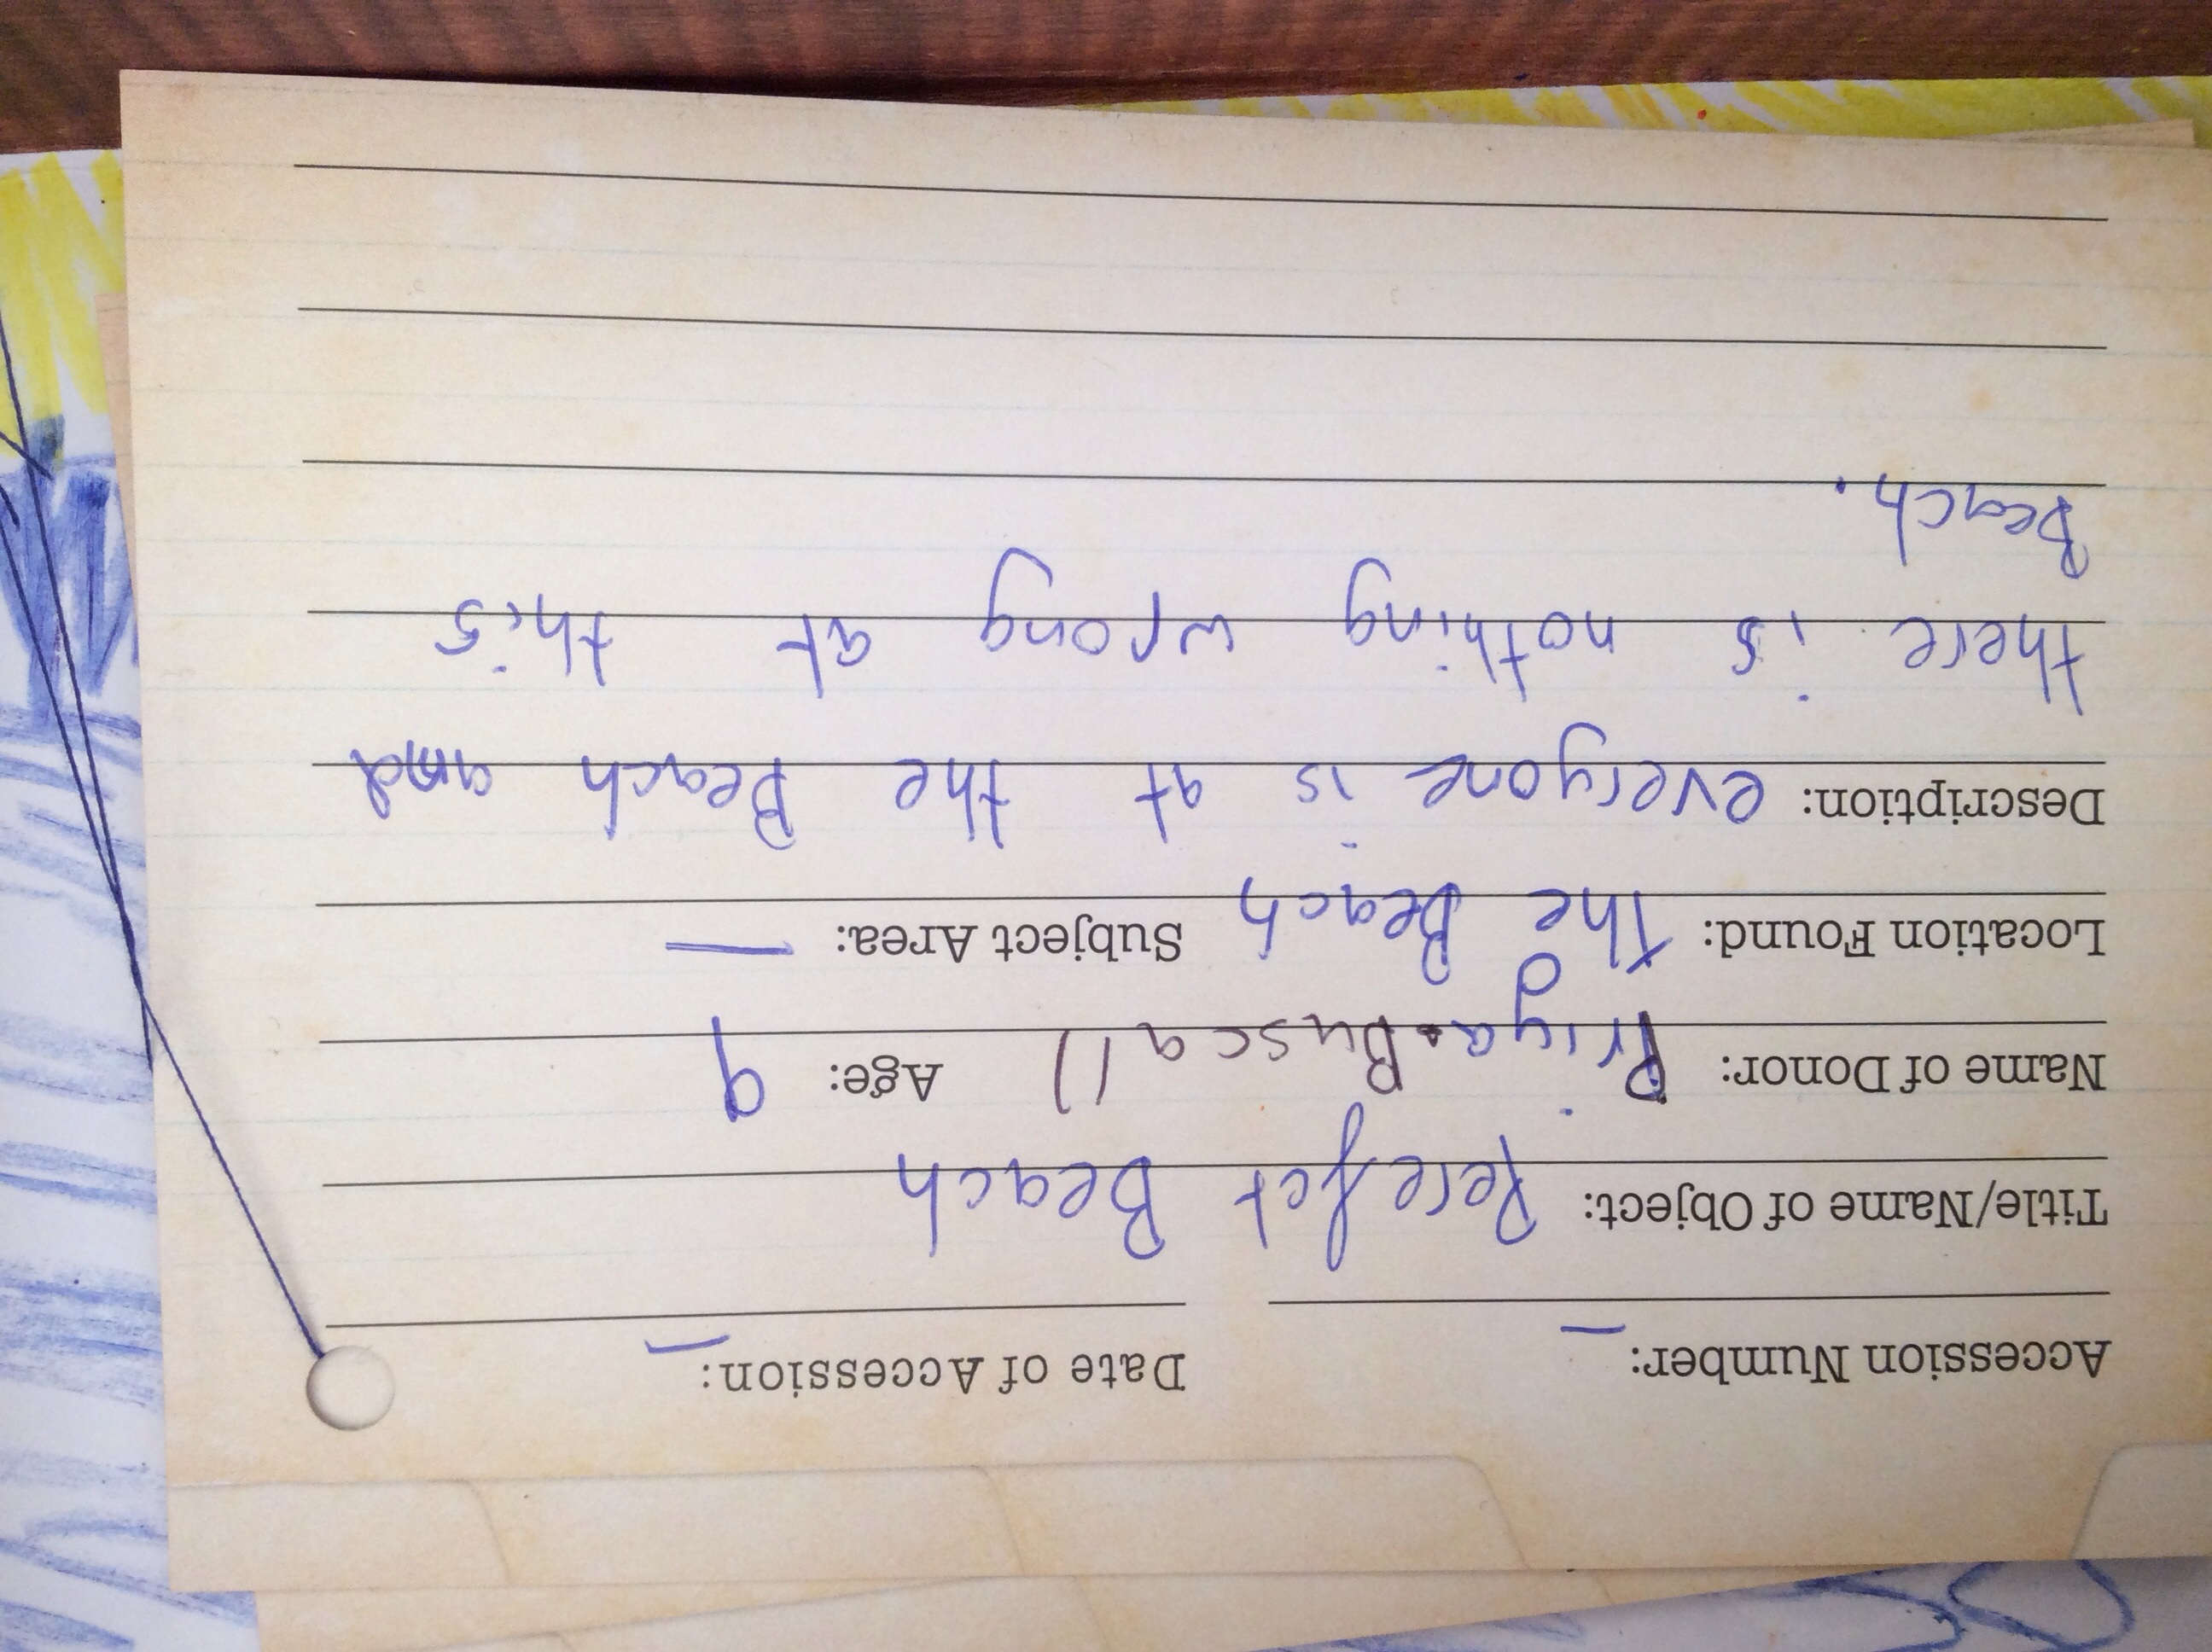 Accession Number: — Date of Accession: —
Title/Name of Object: Perefct Beach
Name of Donor: Priya.Buscall Age: 9
Location Found: The Beach Subject Area: —
Description: everyone is at the Beach and
there is nothing wrong at this
Beach.